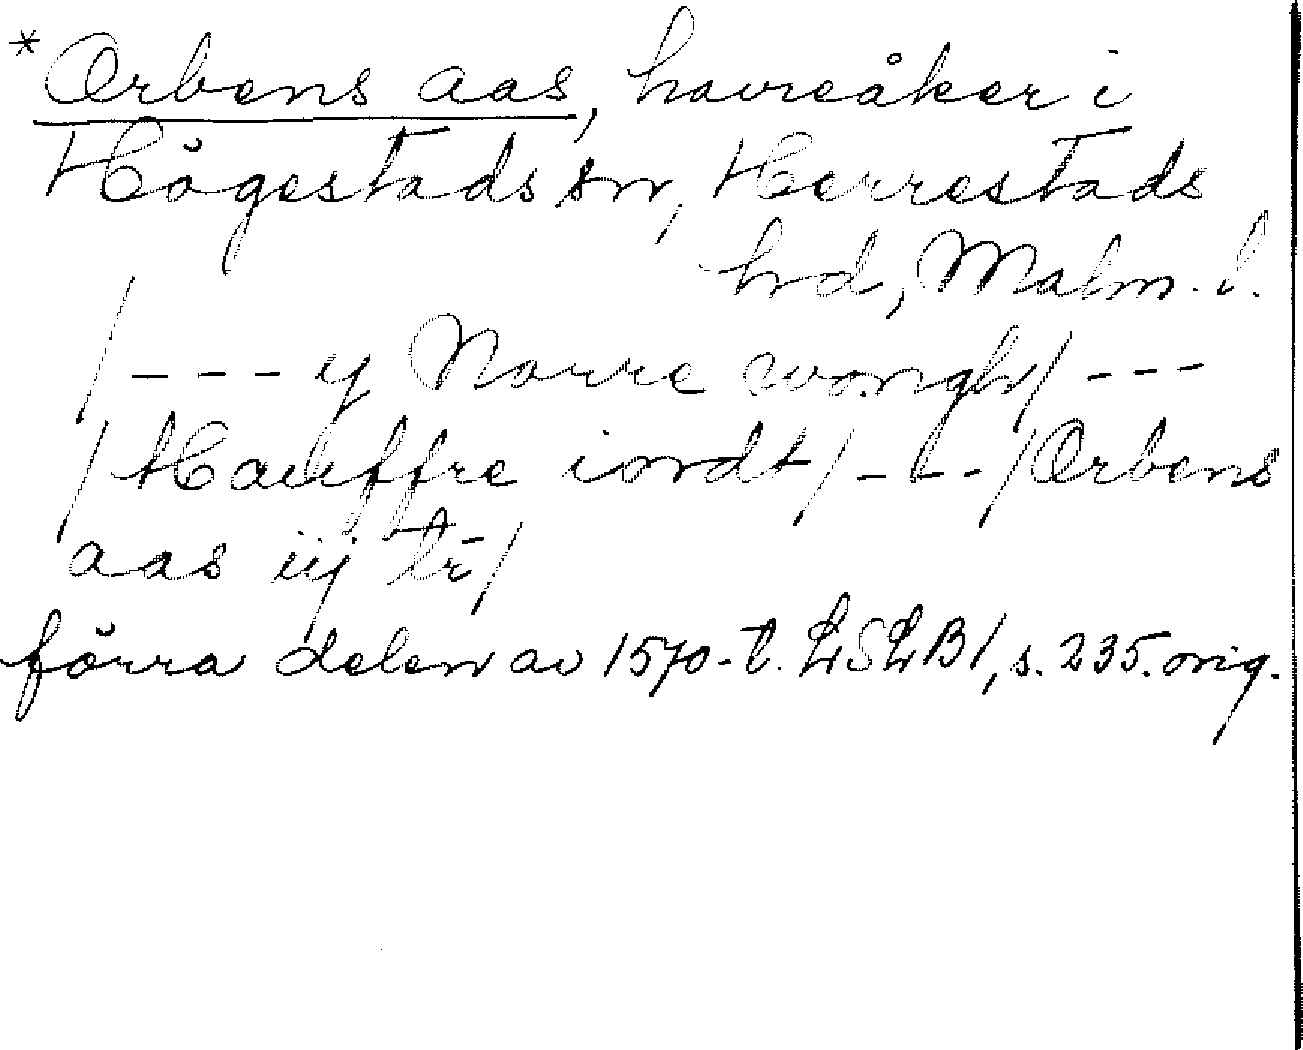 *Orbens aas, havreåker i
Högestads sn, Herrestads
hd, Malm. l.
/--- y Norre wongh/ ---
/Hauffre iordt/ --- /Orbens
aas iij tr/
förra delen av 1570-t. LSLB1, s. 235. orig.